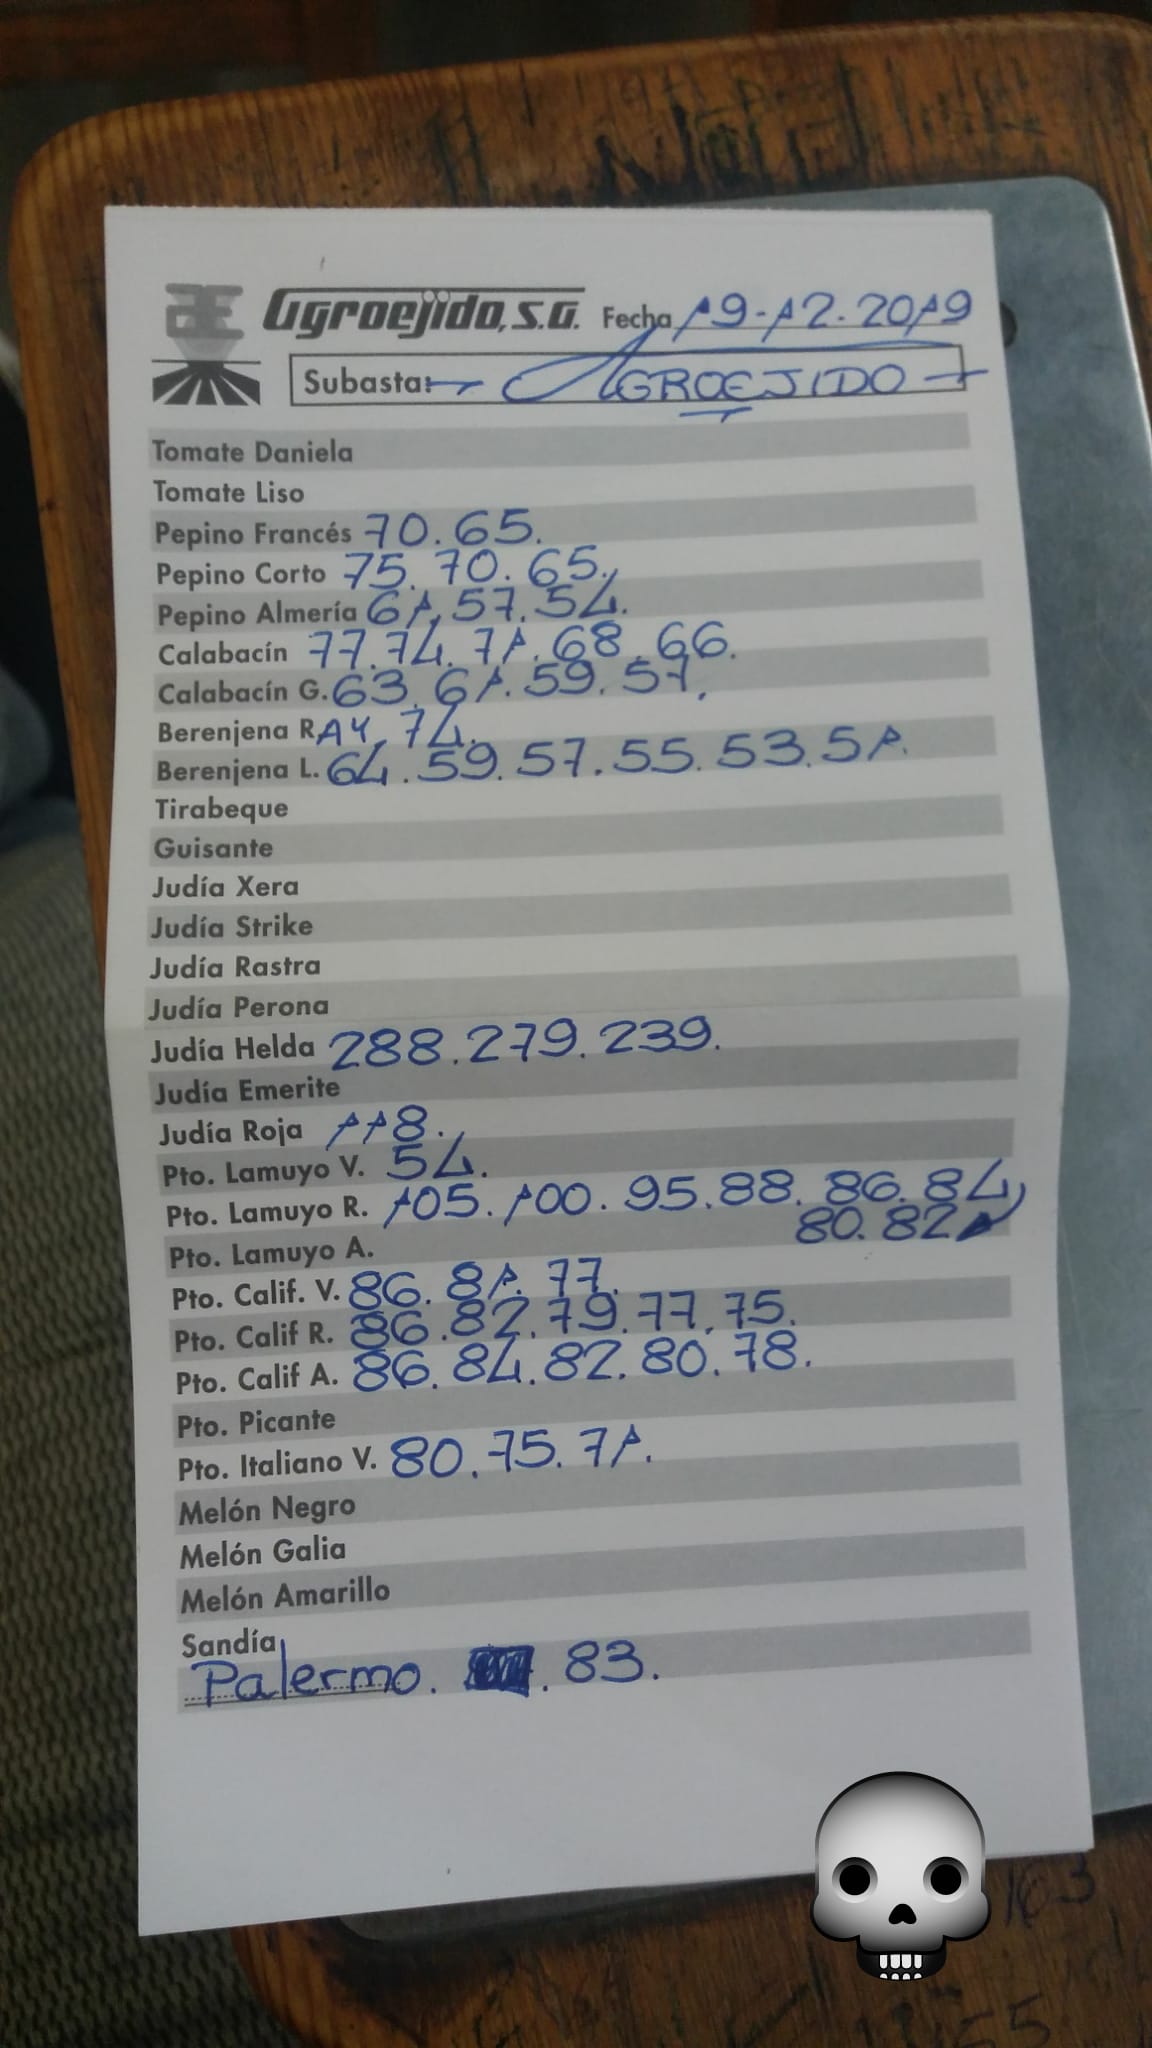 Agroejido, S.A. Fecha 19-12-2019
Subasta: AGROEJIDO
Tomate Daniela
Tomate Liso
Pepino Francés 70. 65.
Pepino Corto 75. 70. 65.
Pepino Almería 61. 57. 54.
Calabacín 77. 74. 71. 68. 66.
Calabacín G. 63. 61. 59. 57.
Berenjena RAY. 74.
Berenjena L. 64. 59. 57. 55. 53. 51.
Tirabeque
Guisante
Judía Xera
Judía Strike
Judía Rastra
Judía Perona
Judía Helda 288. 279. 239.
Judía Emerite
Judía Roja 118.
Pto. Lamuyo V. 54.
Pto. Lamuyo R. 105. 100. 95. 88. 86. 84
80. 82
Pto. Lamuyo A.
Pto. Calif. V. 86. 81. 77.
Pto. Calif R. 86. 82. 79. 77. 75.
Pto. Calif A. 86. 84. 82. 80. 78.
Pto. Picante
Pto. Italiano V. 80. 75. 71.
Melón Negro
Melón Galia
Melón Amarillo
Sandía
Palermo. . 83.